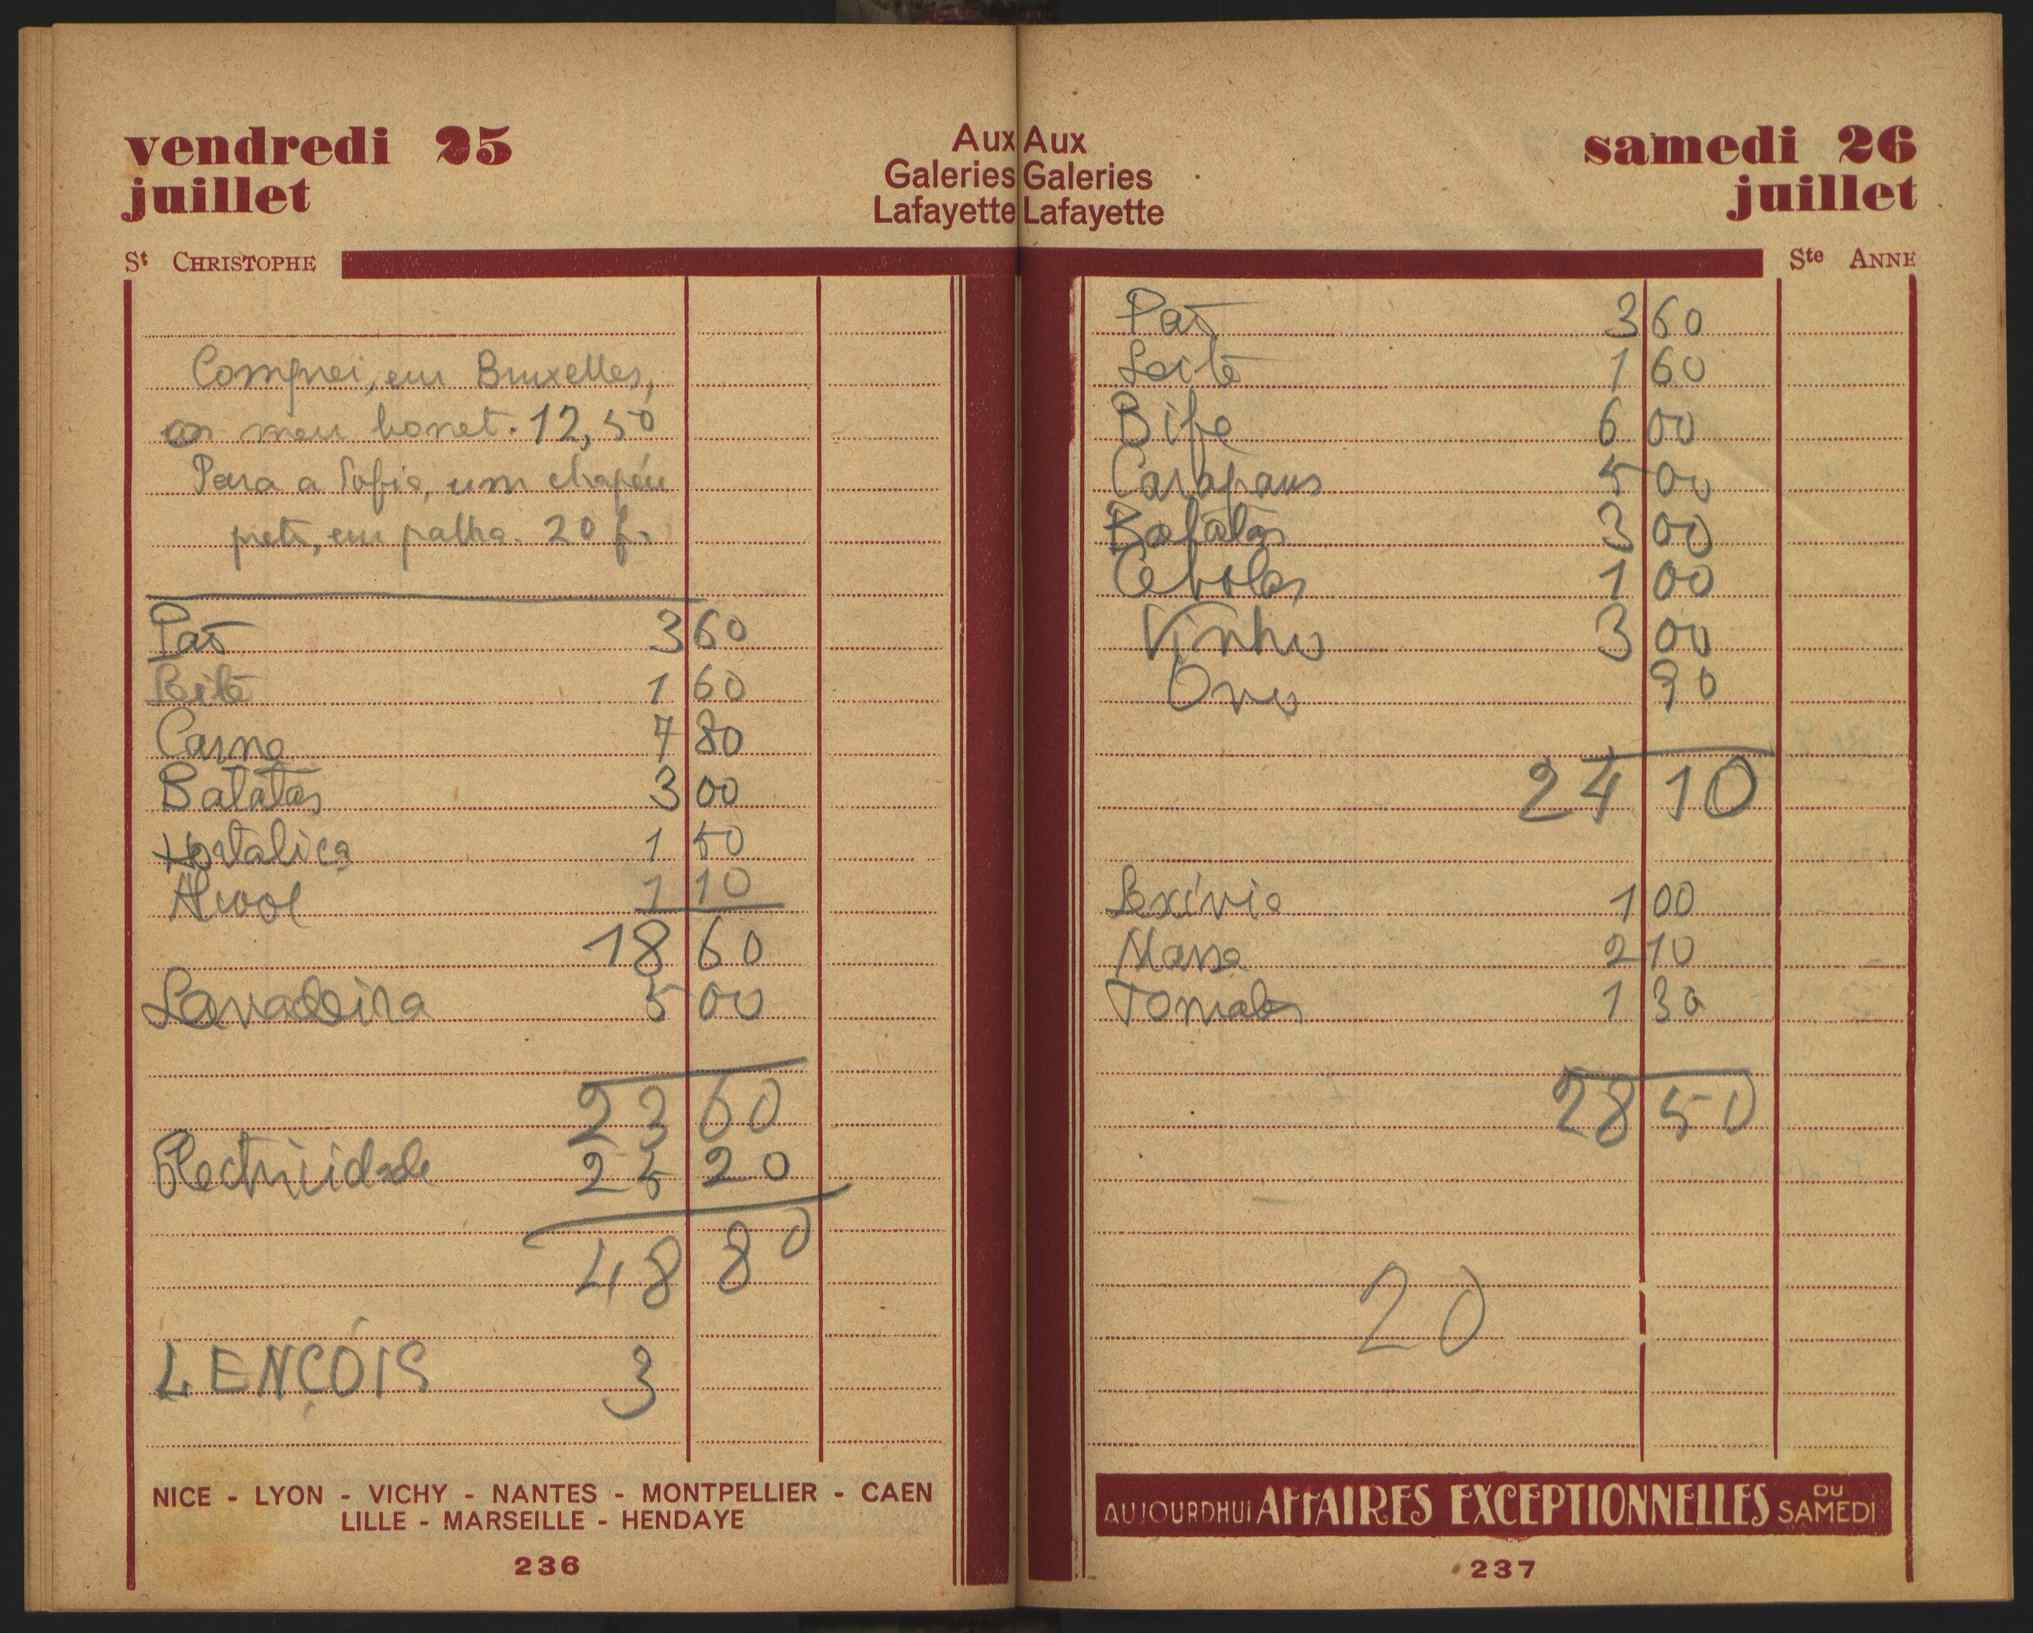 vendredi 25
juillet
Aux
Galeries
Lafayette
St CHRISTOPHE
Comprei, em Bruxelles,
o meu bonet. 12,50
Para a Sofia, um chapéu
preto, em palha. 20 f.
Pão 3 60
Leite 1 60
Carne 7 80
Batatas 3 00
Hortaliça 1 50
Alcool 1 10
18 60
Lavadeira 5 00
23 60
Electricidade 25 20
48 80
LENÇÓIS 3
NICE - LYON - VICHY - NANTES - MONTPELLIER - CAEN
LILLE - MARSEILLE - HENDAYE
236
Aux
Galeries
Lafayette
samedi 26
juillet
Ste ANNE
Pão 3 60
Leite 1 60
Bife 6 00
Carapaus 5 00
Batatas 3 00
Cebolas 1 00
Vinho 3 00
Ovo 90
24 10
Lexívia 1 00
Massa 2 10
Tomates 1 30
28 50
20
AUJOURDHUI AFFAIRES EXCEPTIONNELLES DU SAMEDI
237